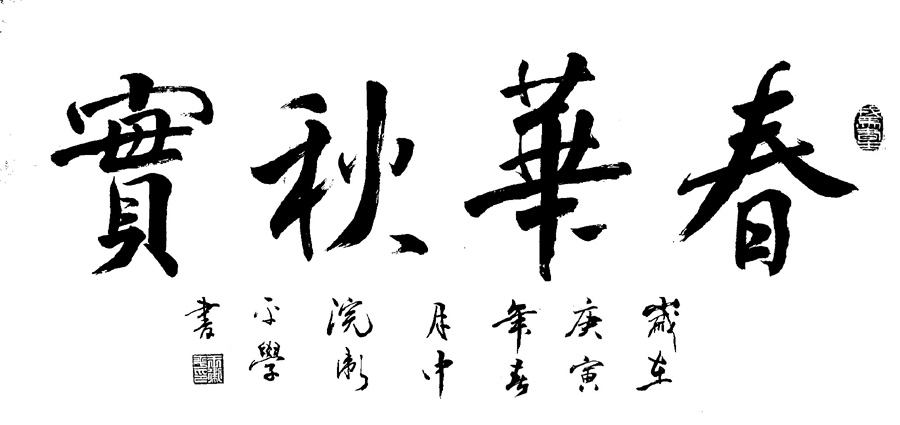 春華秋實
歲在
庚寅
年春
月中
浣衛
平學
書